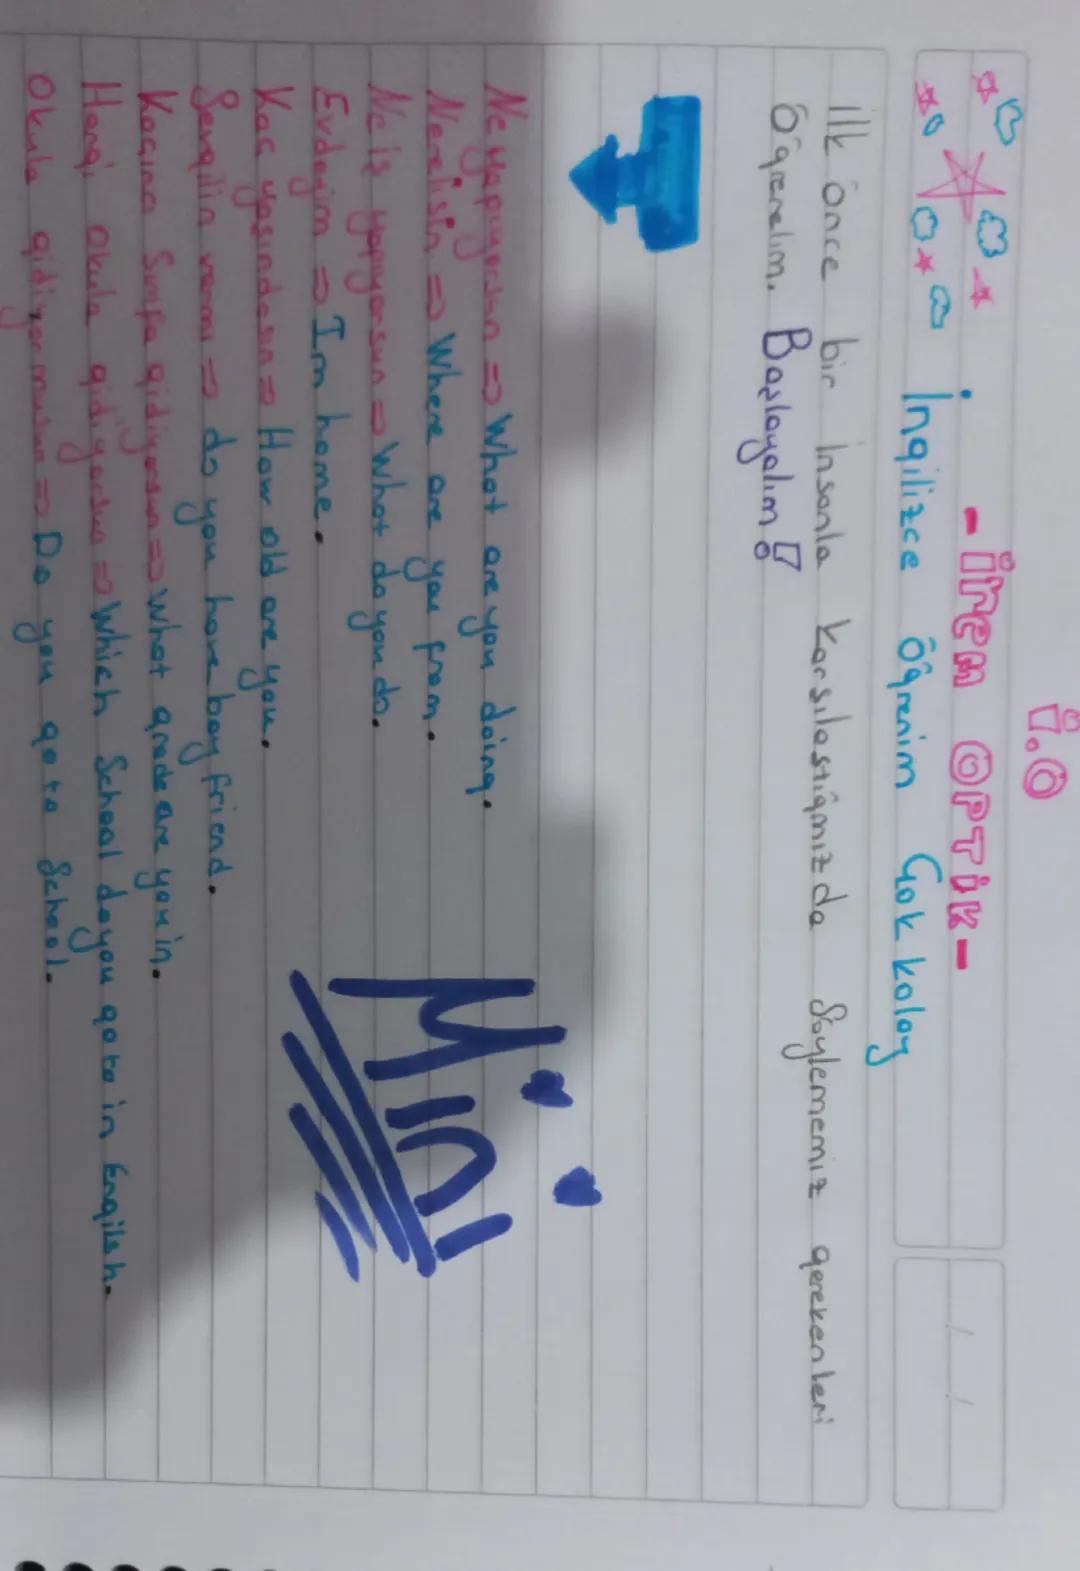 İ.O
-İrem OPTİK-
İngilizce öğrenim Çok kolay
İlk önce bir İnsanla karsılastığmızda Söylememiz gereken leri
Öğrenelim. Başlayalım!
Ne yapıyorsun => What are you doing.
Nerelisin => Where are you from.
Ne iş yapıyorsun => What do you do.
Evdeyim => Im home.
Kaç yaşındasın => How old are you.
Sevgilin varmı => do you have boy friend.
Kaçıncı Sınıfa gidiyorsun => What grade are you in.
Hangi okula gidiyorsun => Which School do you go to in Engilsh.
Okula gidiyormusun => Do you go to School.
Mini